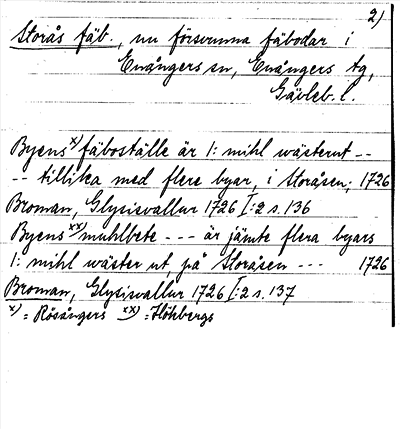 2)
Storås fäb., nu försvunna fäbodar i
Enångers sn, Enångers tg,
Gävleb. l.
Byens x) fäboställe är 1: mihl wästerut --
-- tillika med flere byar, i Storåsen; 1726
Broman, Glysisvallur 1726 I:2 s. 136
Byens xx) muhlbete --- är jämte flera byars
1: mihl wäster ut på Storåsen --- 1726
Broman, Glysisvallur 1726 I:2 s. 137
x) = Rösångers xx) = Höhbergs